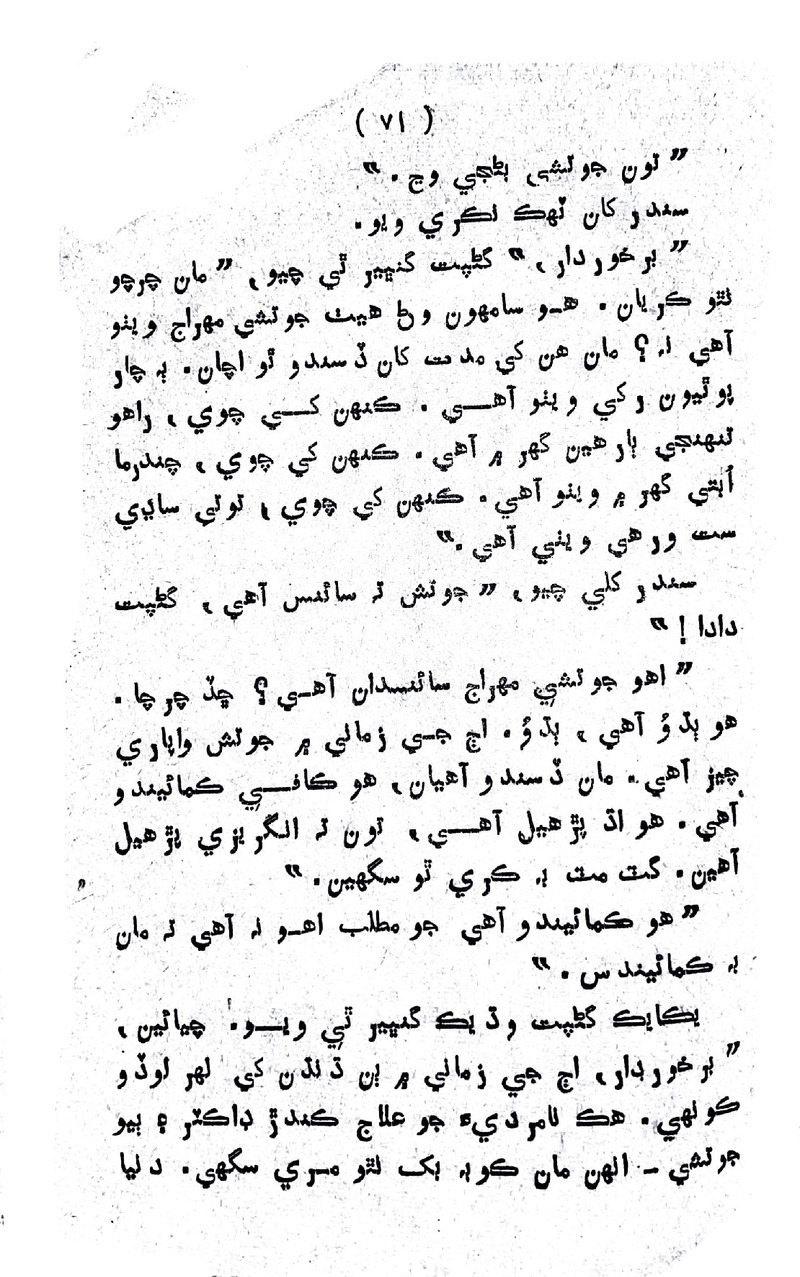 ( ٧١ )
”تون جوتشي بڻجي وڃ.“
سندر کان ٽهڪ نڪري ويو.
”برخوردار،“ گڻپت گنڀير ٿي چيو، ”مان چرچو
نٿو ڪريان. هـو سامهون وڻ هيٺ جوتشي مهراج ويٺو
آهي نہ؟ مان هن کي مدت کان ڏسندو ٿو اچان. ٻہ چار
پوٿيون رکي ويٺو آهـــي. ڪنهن کـــي چوي، راهو
تنهنجي ٻارهين گهر ۾ آهي. ڪنهن کي چوي، چندرما
اُبتي گهر ۾ ويٺو آهي. ڪنهن کي چوي، توتي ساڍي
ست ورهي ويٺي آهي.“
سندر کلي چيو، ”جوتش تہ سائنس آهي، گڻپت
دادا!“
”اهو جوتشي مهراج سائنسدان آهـي؟ ڇڏ چرچا.
هو ٻڌوُ آهي، ٻڌوُ. اڄ جـي زماني ۾ جوتش واپاري
چيز آهي. مان ڏسندو آهيان، هو ڪافـــي ڪمائيندو
آهي. هو اڻ پڙهيل آهـــي، تون تہ انگريزي پڙهيل
آهين. گٽ مٽ بہ ڪري ٿو سگهين.“
”هو ڪمائيندو آهي جو مطلب اهـو نہ آهي تہ مان
بہ ڪمائيندس.“
يڪايڪ گڻپت وڌيڪ گنڀير ٿي ويـــو. چيائين،
”برخوردار، اڄ جي زماني ۾ ٻن ڌنڌن کي لهر لوڏو
ڪونهي. هڪ نامرديءَ جو علاج ڪندڙ ڊاڪٽر ۽ ٻيو
جوتشي – انهن مان ڪوبہ بک نٿو مـري سگهي. دنيا